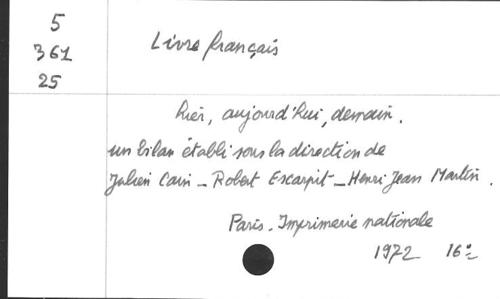 5
361
25
Livre français
hier, aujourd'hui, demain.
un bilan établi sous la direction de
Julien Cain - Robert Escarpit - Henri Jean Martin.
Paris. Imprimerie nationale
1972 16°